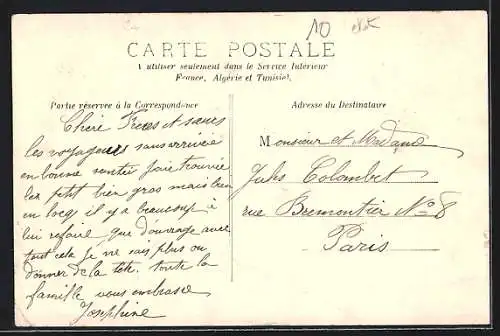 10
CARTE POSTALE
A utiliser seulement dans le Service Intérieur
France, Algérie et Tunisie).
Partie réservée à la Correspondance
Adresse du Destinataire
Chère Frères et sœurs
les voyageurs sans arrivée
en bonne santé j'ai trouvée
les petit bien gros mais bien
en loq, il y a beaucoup à
lui refaire que d'ouvrage avec
tout cela je ne sais plus ou
donner de la tête. toute la
famille vous embrasse
Joséphine
Monsieur et Madame
Jules Colombet
rue Bremontier No 8
Paris